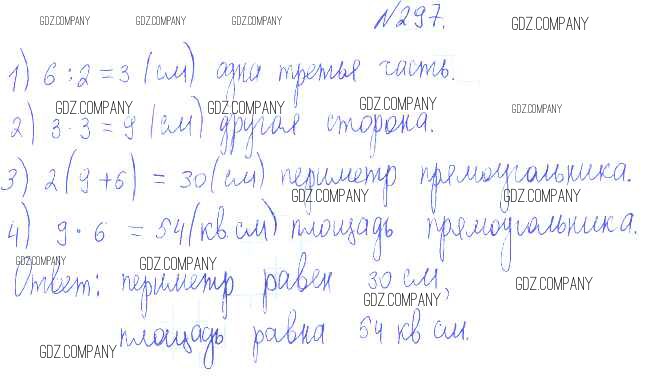 GDZ.COMPANY GDZ.COMPANY GDZ.COMPANY №297. GDZ.COMPANY
1) 6 : 2 = 3 (см) одна третья часть.
GDZ.COMPANY GDZ.COMPANY GDZ.COMPANY GDZ.COMPANY
2) 3 · 3 = 9 (см) другая сторона.
3) 2(9+6) = 30(см) периметр прямоугольника.
GDZ.COMPANY GDZ.COMPANY
4) 9 · 6 = 54(кв.см) площадь прямоугольника.
GDZ.COMPANY GDZ.COMPANY
Ответ: периметр равен 30 см,
GDZ.COMPANY GDZ.COMPANY
площадь равна 54 кв см.
GDZ.COMPANY